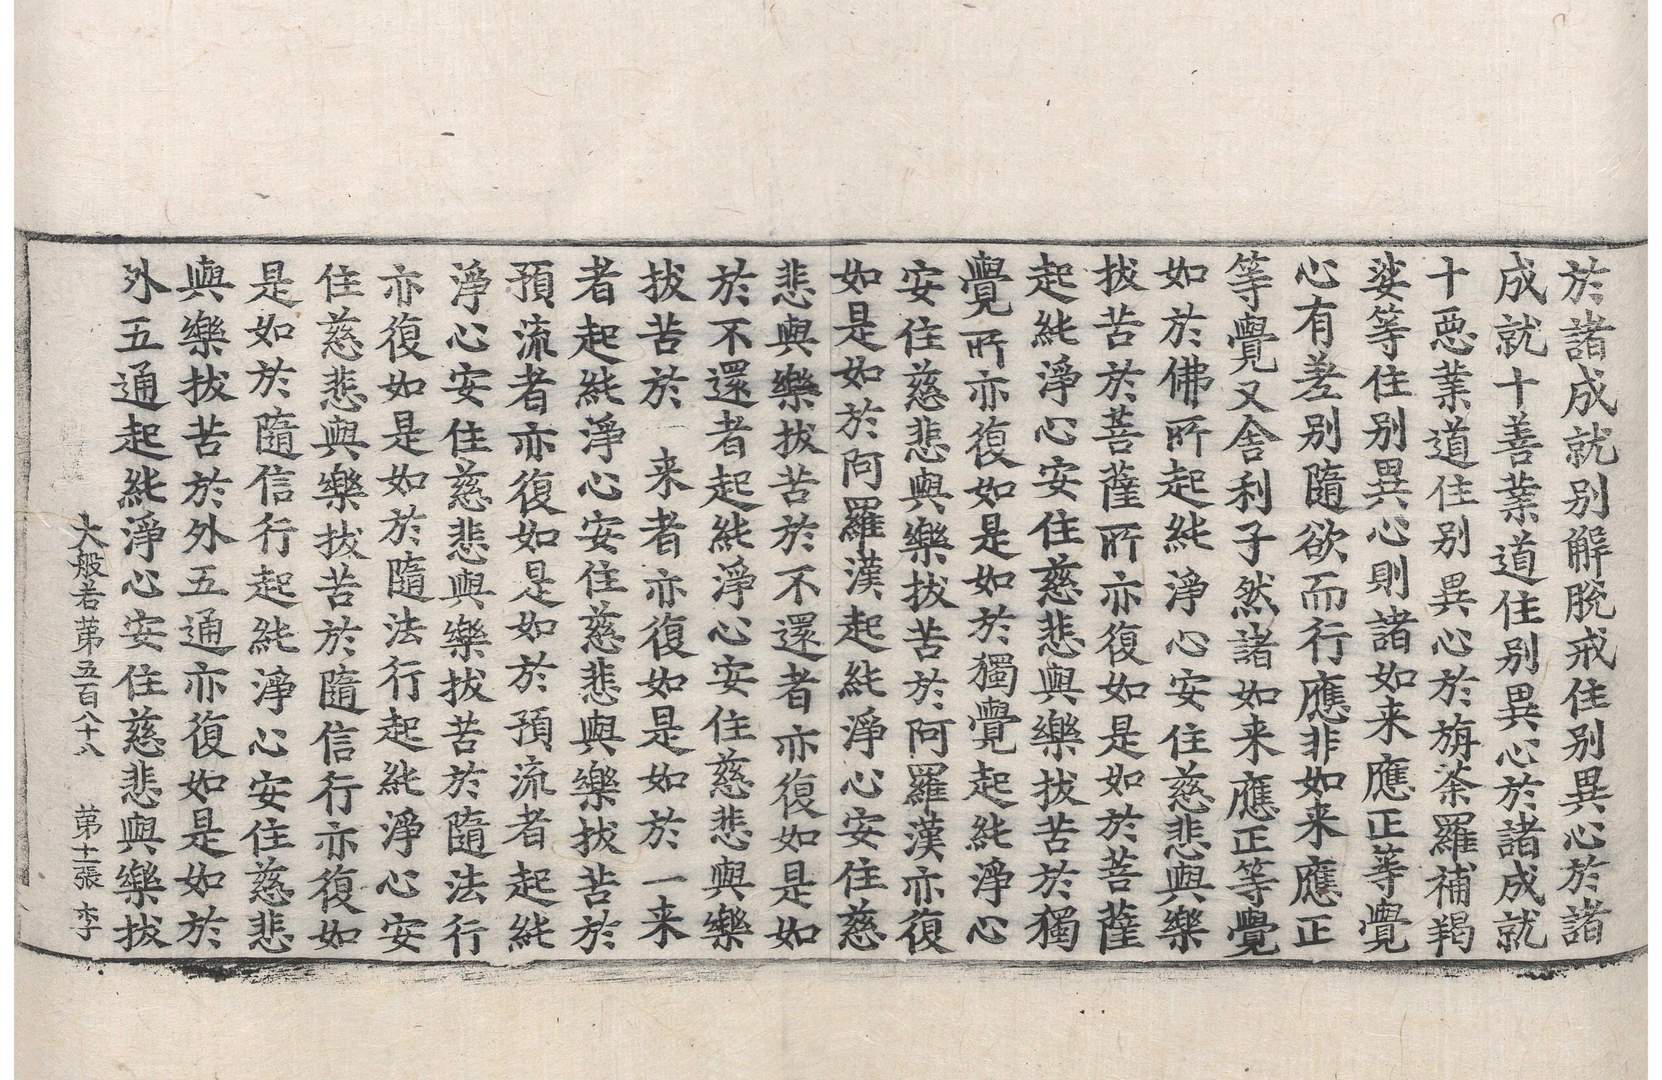 於諸成就别解脫戒住别異心於諸
成就十善業道住别異心於諸成就
十惡業道住别異心於旃荼羅補羯
娑等住别異心則諸如来應正等覺
心有差别隨欲而行應非如来應正
等覺又舍利子然諸如来應正等覺
如於佛所起純淨心安住慈悲與樂
拔苦於菩薩所亦復如是如於菩薩
起純淨心安住慈悲與樂拔苦於獨
覺所亦復如是如於獨覺起純淨心
安住慈悲與樂拔苦於阿羅漢亦復
如是如於阿羅漢起純淨心安住慈
悲與樂拔苦於不還者亦復如是如
於不還者起純淨心安住慈悲與樂
拔苦於一来者亦復如是如於一来
者起純淨心安住慈悲與樂拔苦於
預流者亦復如是如於預流者起純
淨心安住慈悲與樂拔苦於隨法行
亦復如是如於隨法行起純淨心安
住慈悲與樂拔苦於隨信行亦復如
是如於隨信行起純淨心安住慈悲
與樂拔苦於外五通亦復如是如於
外五通起純淨心安住慈悲與樂拔
大般若第五百八十八 第十一張 李